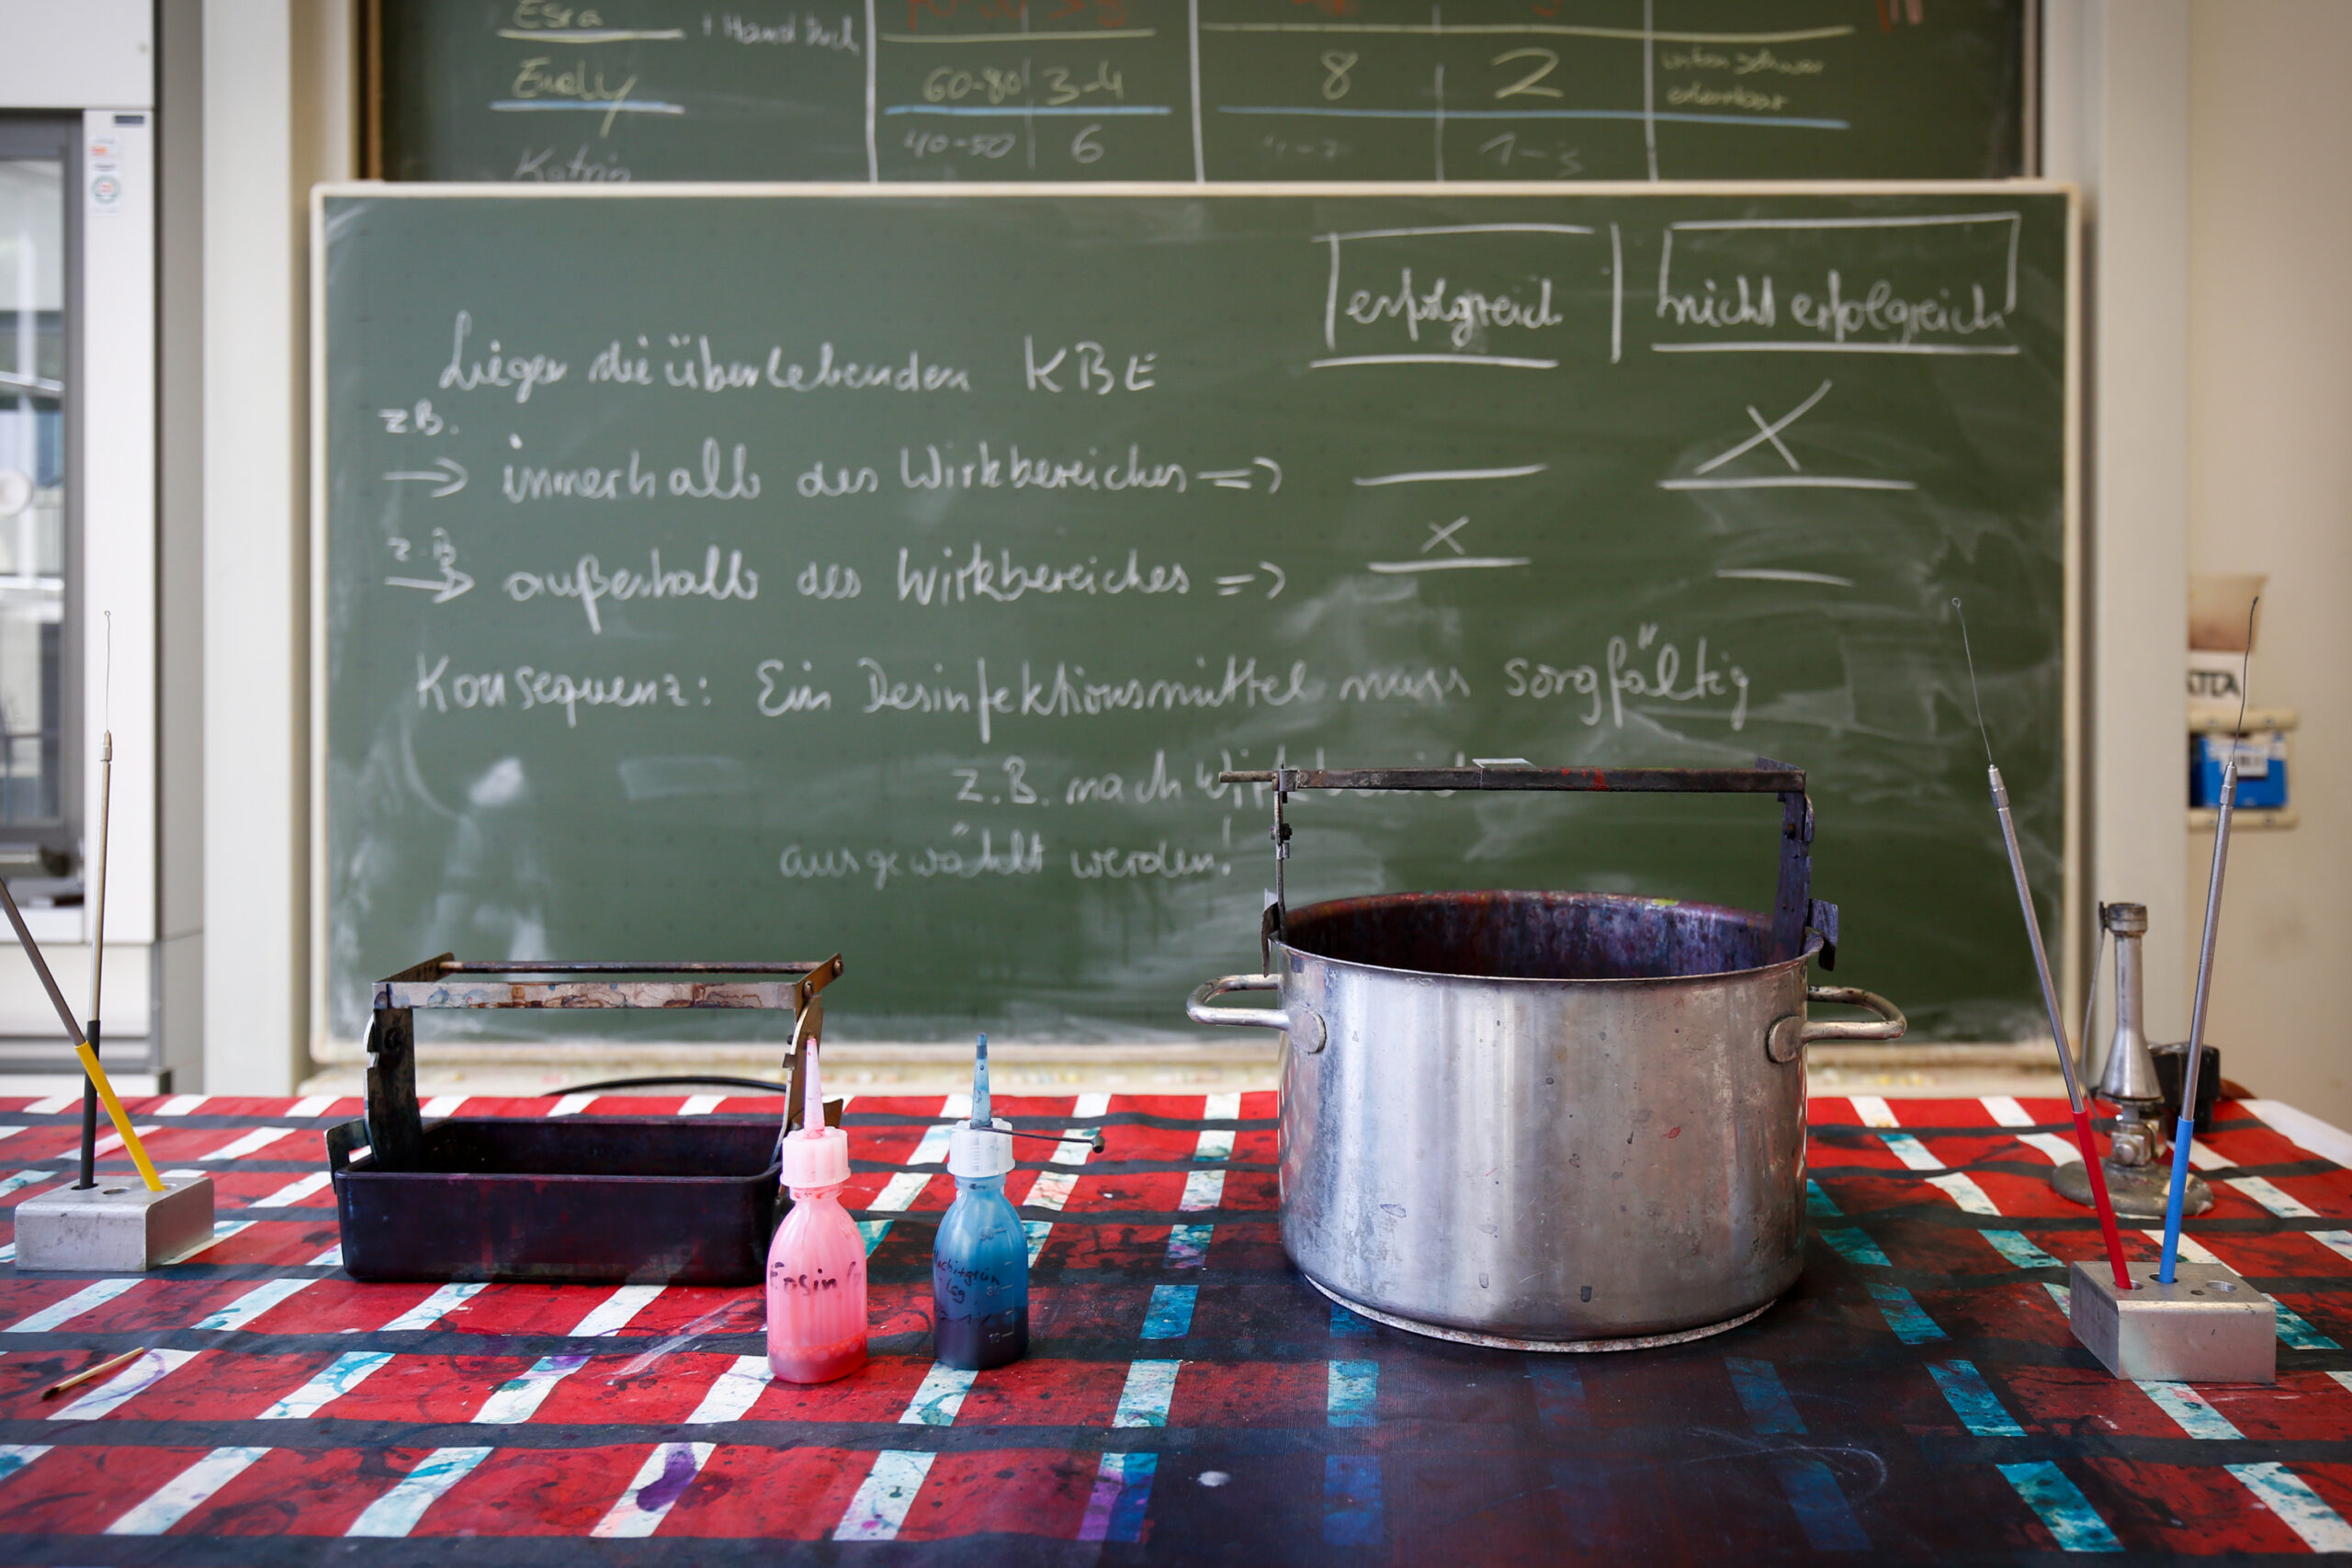 Esra + Handtuch
Emily 60-80 3-4 8 2 unten schwer
erkennbar
Katrin 40-50 6 4-7 1-3
erfolgreich nicht erfolgreich
Liegen die überlebenden KBE
z.B.
→ innerhalb des Wirkbereiches => — X
z.B.
→ außerhalb des Wirkbereiches => X —
Konsequenz: Ein Desinfektionsmittel muss sorgfältig
z.B. nach Wirkbereich
ausgewählt werden!
Eosin
Malachitgrün